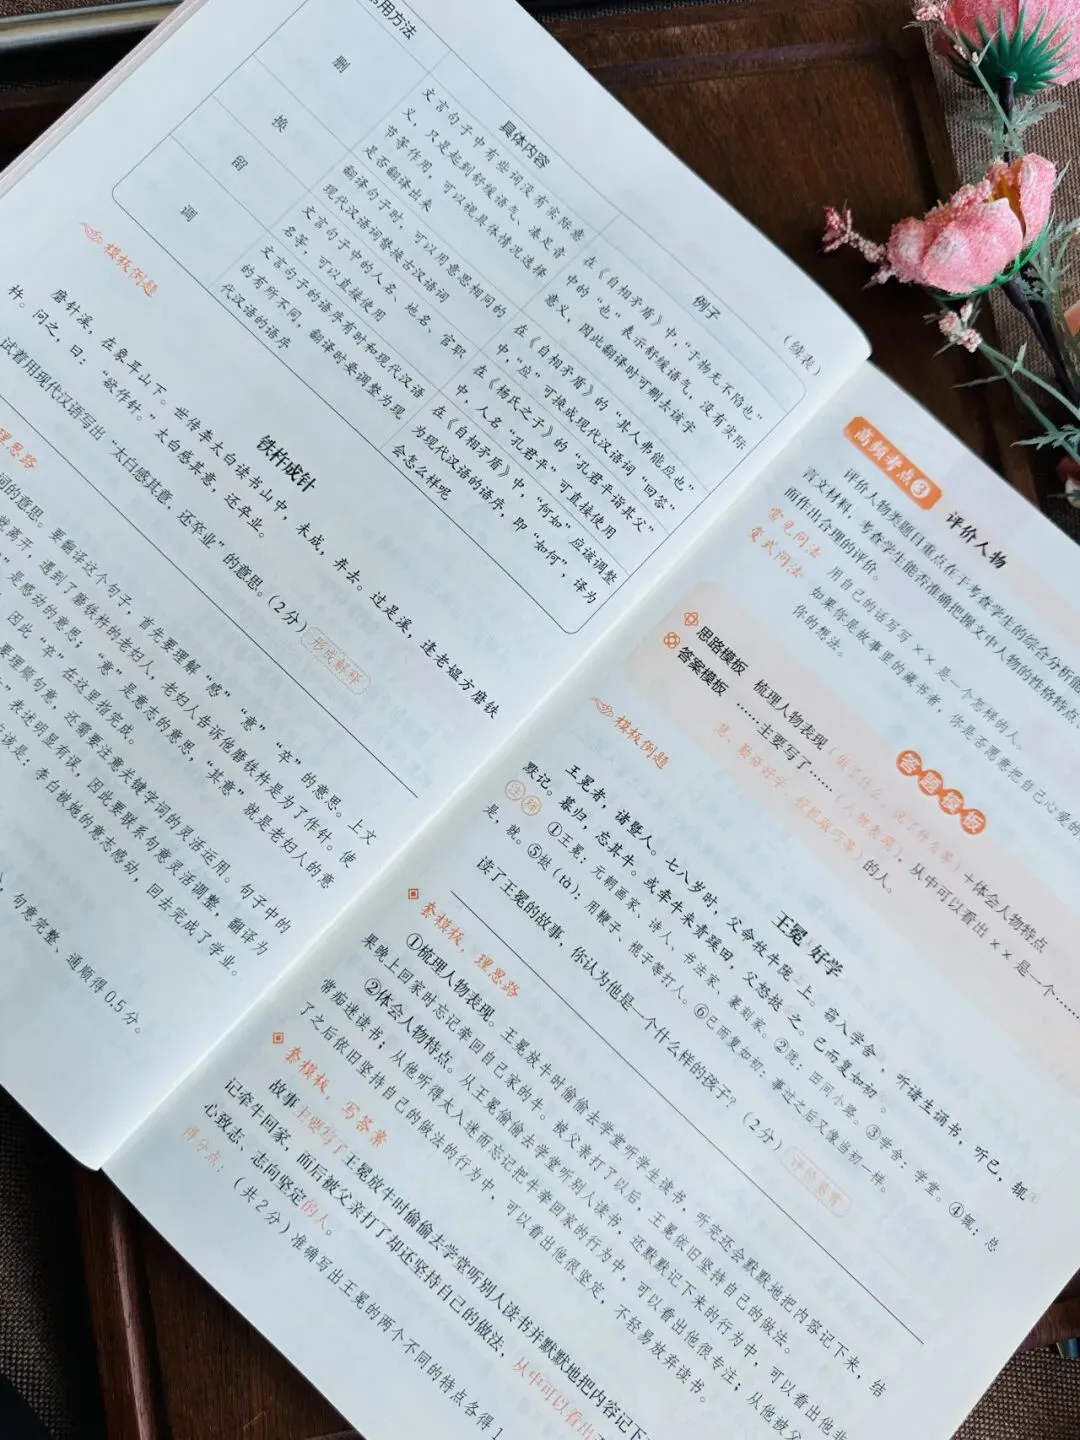 常用方法
具体内容
例子
(续表)
删
文言句子中有些词没有实际意
义，只是起到舒缓语气、表足音
节等作用，可以视具体情况选择
是否翻译出来
在《自相矛盾》中，“于物无不陷也”
中的“也”表示舒缓语气，没有实际
意义，因此翻译时可删去该字
换
翻译句子时，可以用意思相同的
现代汉语词替换古汉语词
在《自相矛盾》的“其人弗能应也”
中，“应”可换成现代汉语词“回答”
留
文言句子中的人名、地名、官职
名等，可以直接使用
在《杨氏之子》的“孔君平诣其父”
中，人名“孔君平”可直接使用
调
文言句子的语序有时和现代汉语
的有所不同，翻译时要调整为现
代汉语的语序
在《自相矛盾》中，“何如”应该调整
为现代汉语的语序，即“如何”，译为
会怎么样呢
模板例题
铁杵成针
磨针溪，在象耳山下。世传李太白读书山中，未成，弃去。过是溪，逢老媪方磨铁
杵。问之，曰：“欲作针。”太白感其意，还卒业。
试着用现代汉语写出“太白感其意，还卒业”的意思。(2分)
形成解释
理思路
词的意思。要翻译这个句子，首先要理解“感”“意”“卒”的意思。上文
就离开，遇到了磨铁杵的老妇人，老妇人告诉他磨铁杵是为了作针。使
”是感动的意思；“意”是意志的意思，“其意”就是老妇人的意
因此“卒”在这里指完成。
要理顺句意，还需要注意关键字词的灵活运用。句子中的
”表述明显有误，因此要联系句意灵活调整，翻译为
应该是：李白被她的意志感动，回去完成了学业。
，句意完整、通顺得0.5分。
高频考点3 评价人物
评价人物类题目重点在于考查学生的综合分析能
言文材料，考查学生能否准确把握文中人物的性格特点
而作出合理的评价。
常见问法 用自己的话写写××是一个怎样的人。
变式问法 如果你是故事里的藏书者，你是否愿意把自己心爱的
你的想法。
答题模板
思路模板 梳理人物表现(做了什么、说了什么等)＋体会人物特点
答案模板 ……主要写了……(人物表现)，从中可以看出××是一个……
慧、勤奋好学、
的人。
模板例题
王冕①好学
王冕者，诸暨人。七八岁时，父命牧牛陇②上。窃入学舍③，听诸生诵书，听已，辄④
默记。暮归，忘其牛。或牵牛来责蹊田，父怒挞⑤之。已而复如初⑥。
注释 ①王冕：元朝画家、诗人、书法家、篆刻家。②陇：田间小路。③学舍：学堂。④辄：总
是，就。⑤挞(tà)：用鞭子、棍子等打人。⑥已而复如初：事过之后又像当初一样。
读了王冕的故事，你认为他是一个什么样的孩子？(2分)
评价鉴赏
套模板，理思路
①梳理人物表现。王冕放牛时偷偷去学堂听学生读书，听完还会默默地把内容记下来，结
果晚上回家时忘记牵回自己家的牛。被父亲打了以后，王冕依旧坚持自己的做法。
②体会人物特点。从王冕偷偷去学堂听别人读书，还默默记下来的行为中，可以看出他非
常痴迷读书；从他听得太入迷而忘记把牛牵回家的行为中，可以看出他很专注；从他被父
了之后依旧坚持自己的做法的行为中，可以看出他很坚定，不轻易放弃读书。
套模板，写答案
故事主要写了王冕放牛时偷偷去学堂听别人读书并默默地把内容记下
记牵牛回家，而后被父亲打了却还坚持自己的做法，从中可以看出
心致志、志向坚定的人。
得分点：(共2分)准确写出王冕的两个不同的特点各得1